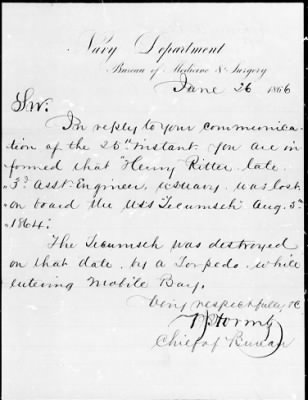 Navy Department
Bureau of Medicine & Surgery
June 26 1866
Sir.
In reply to your communica
tion of the 25th instant. You are in
formed that "Henry Ritter late
3d Asst Engineer, USNavy, was lost
on board the USS "Tecumseh" Aug. 5th
1864.
The Tecumseh was destroyed
on that date, by a Torpedo, while
entering Mobile Bay.
Very respectfully, &c
Chief of Bureau